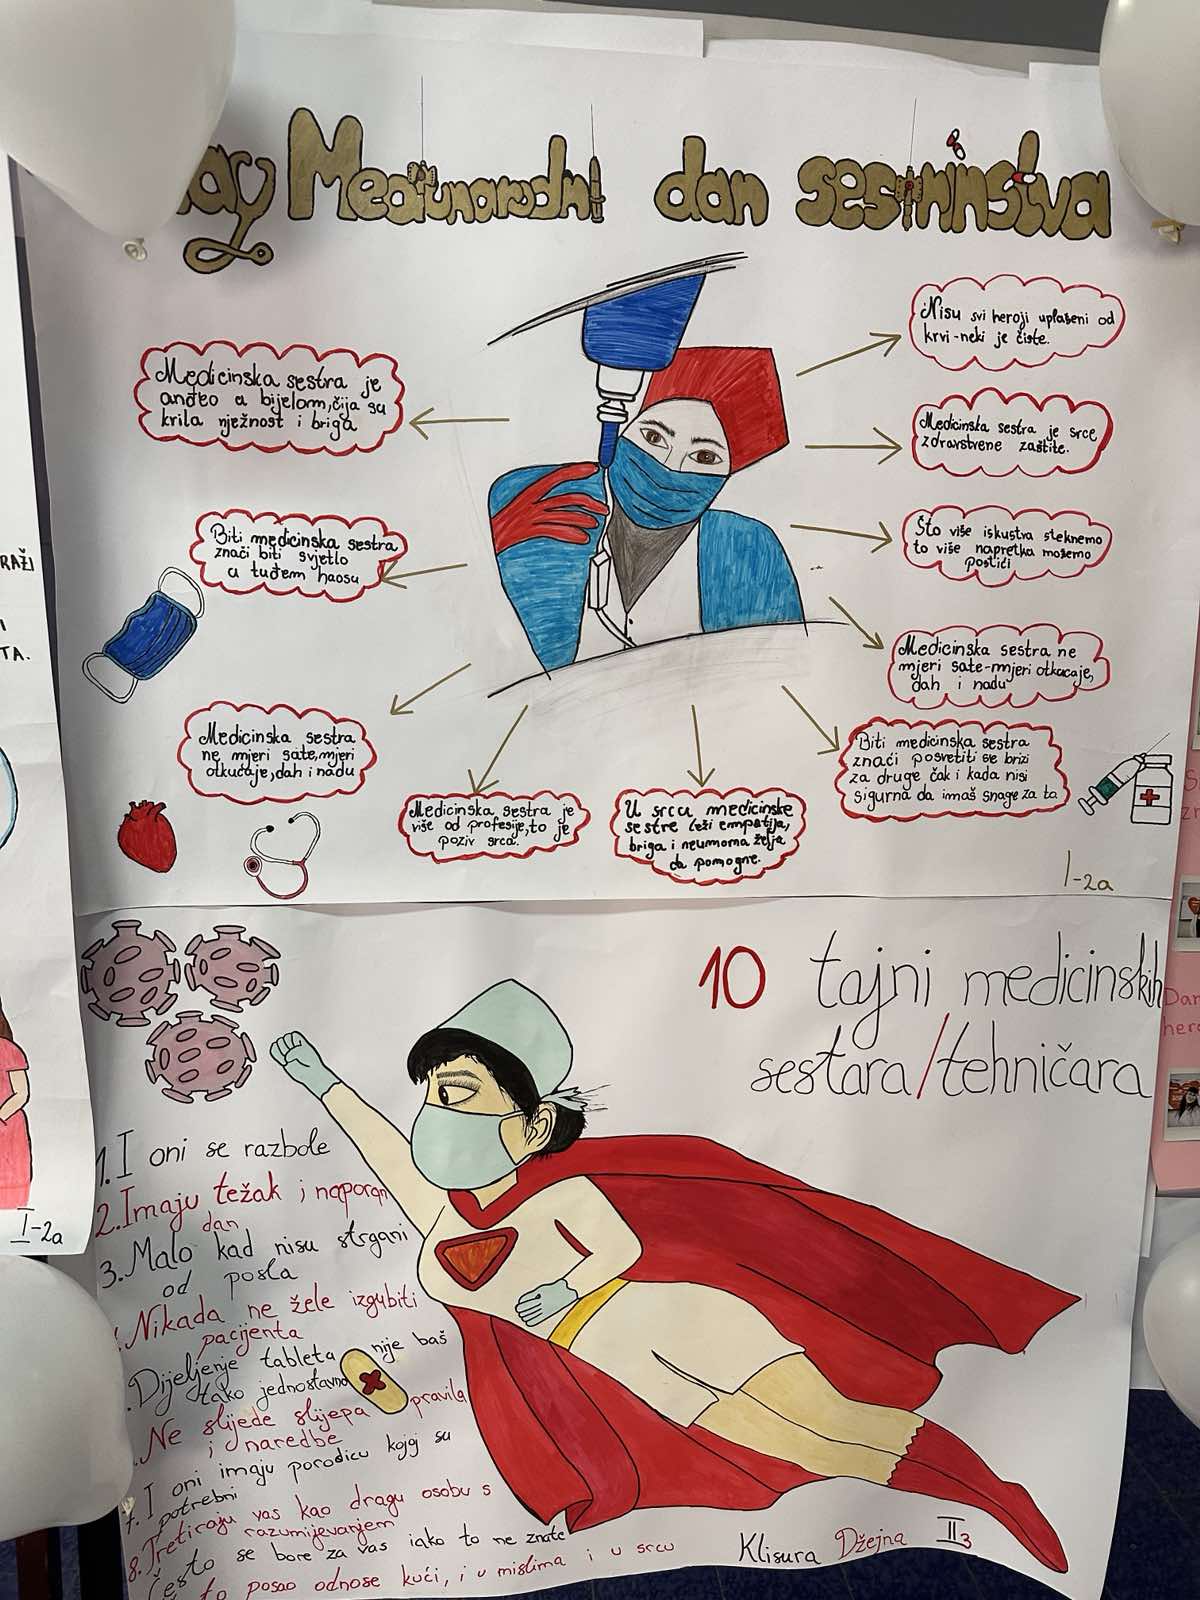 Maj Međunarodni dan sestrinstva
Medicinska sestra je
anđeo u bijelom, čija su
krila nježnost i briga
Biti medicinska sestra
znači biti svjetlo
u tuđem haosu
Medicinska sestra
ne mjeri sate, mjeri
otkucaje, dah i nadu
Medicinska sestra je
više od profesije, to je
poziv srca.
U srcu medicinske
sestre leži empatija,
briga i neumorna želja
da pomogne.
Nisu svi heroji uplašeni od
krvi-neki je čiste.
Medicinska sestra je srce
zdravstvene zaštite.
Što više iskustva steknemo
to više napretka možemo
postići
Medicinska sestra ne
mjeri sate-mjeri otkucaje,
dah i nadu
Biti medicinska sestra
znači posvetiti se brizi
za druge čak i kada nisi
sigurna da imaš snage za to
I-2a
10 tajni medicinskih
sestara/tehničara
1. I oni se razbole
2. Imaju težak i naporan
dan
3. Malo kad nisu strgani
od posla
Nikada ne žele izgubiti
pacijenta
Dijeljenje tableta nije baš
tako jednostavno
Ne slijede slijepa pravila
i naredbe
7. I oni imaju porodicu kojoj su
potrebni
8. Tretiraju vas kao dragu osobu s
razumijevanjem
Često se bore za vas iako to ne znate
to posao odnose kući, i u mislima i u srcu
Klisura Džejna II3
RAŽI
I
TA.
I-2a
Dan
hero